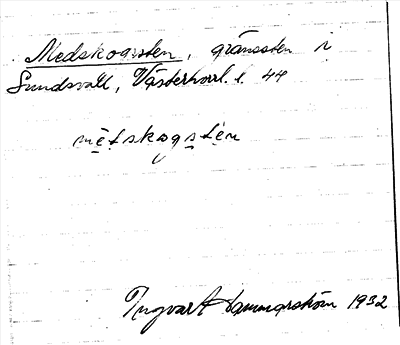 Medskogssten, gränssten i
Sundsvall, Västerhorrl. l. 44
mètskogstèn
Ingvart Hammarström 1932